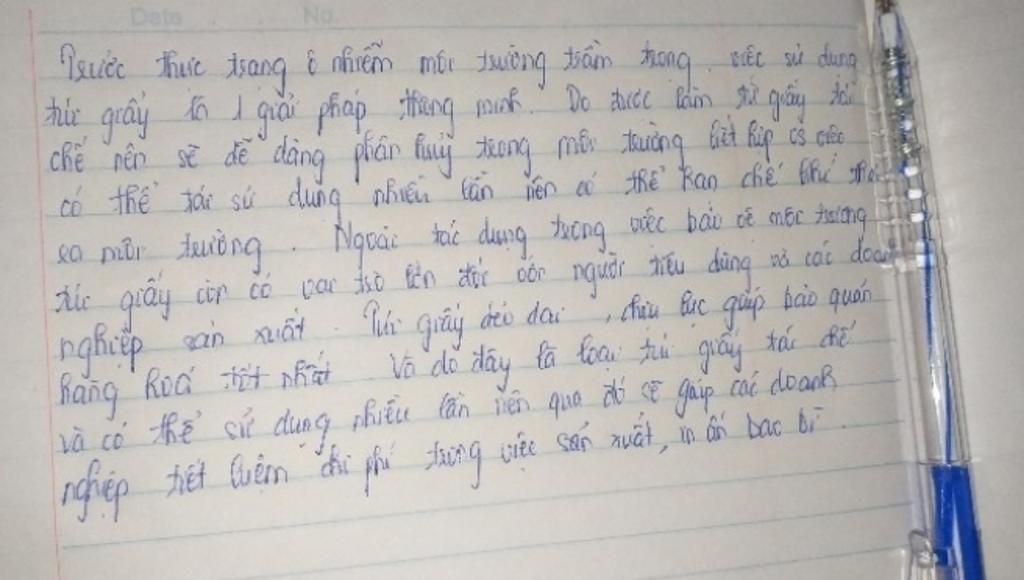 Date No.
Trước thực trạng ô nhiễm môi trường trầm trọng, việc sử dụng
túi giấy là 1 giải pháp thông minh. Do được làm từ giấy tái
chế nên sẽ dễ dàng phân huỷ trong môi trường
có thể tái sử dụng nhiều lần nên có thể hạn chế khí thải
ra môi trường. Ngoài tác dụng trong việc bảo vệ môi trường
túi giấy còn có vai trò lớn đối với người tiêu dùng và các doanh
nghiệp sản xuất. Túi giấy dẻo dai, chịu lực giúp bảo quản
hàng hoá tốt nhất Và do đây là loại túi giấy tái chế
và có thể sử dụng nhiều lần nên qua đó sẽ giúp các doanh
nghiệp tiết kiệm chi phí trong việc sản xuất, in ấn bao bì.